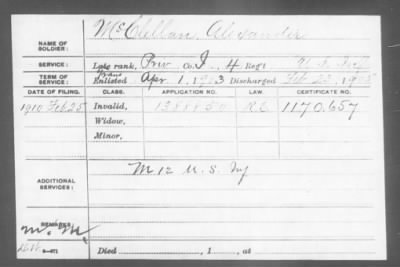 McClellan, Alexander
NAME OF SOLDIER:
SERVICE: Late rank, Priv, Co. I, 4 Regt U. S. Inf
TERM OF SERVICE: Trans Enlisted Apr 1, 1903 Discharged Feb 23, 1905
DATE OF FILING. CLASS. APPLICATION NO. LAW. CERTIFICATE NO.
1910 Feb 25 Invalid, 1388850 1170.657
Widow,
Minor,
ADDITIONAL SERVICES: M 12 U.S. Inf
REMARKS:
Died , 1 , at